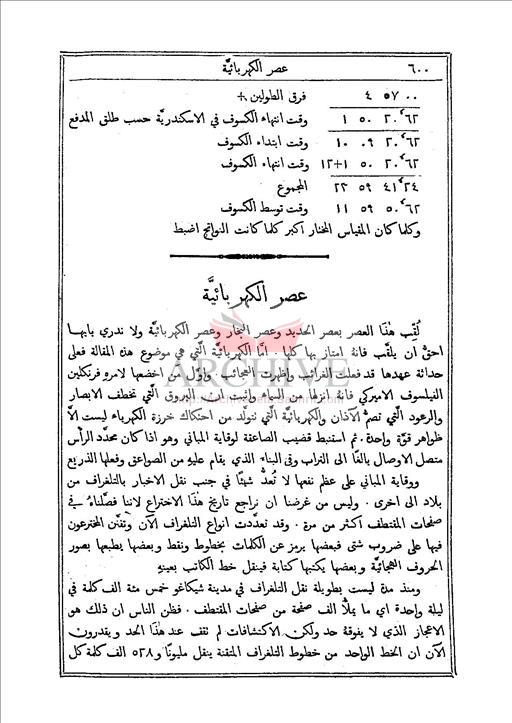 ٦٠٠ عصر الكهربائيَّة
٠٠ ٥٧ ٤ فرق الطولين +
٢٠٬٦٢ ٥٠ ١ وقت انتهاء الكسوف في الاسكندريَّة حسب طلق المدفع
٢٠٬٦٢ ٠٩ ١٠ وقت ابتداء الكسوف
٢٠٬٦٢ ٥٠ ١+١٢ وقت انتهاء الكسوف
٤١٬٢٤ ٥٩ ٢٣ المجموع
٥٠٬٦٢ ٥٩ ١١ وقت توسط الكسوف
وكلما كان المقياس المختار اكبر كلما كانت النواتج اضبط
عصر الكهربائيَّة
لُقِّب هذا العصر بعصر الحديد وعصر البخار وعصر الكهربائيَّة ولا ندري بايها
احقُّ ان يلقَّب فانهُ امتاز بها كلها. امَّا الكهربائيَّة الَّتي هي موضوع هذه المقالة فعلى
حداثة عهدها قد فعلت الغرائب واظهرت العجائب. واوَّل من اخضعها لامرهِ فرنكلين
الفيلسوف الاميركي فانهُ انزلها من السماء واثبت ان البروق الَّتي تخطف الابصار
والرعود الَّتي تصمُّ الآذان والكهربائيَّة الَّتي تتولَّد من احتكاك خرزة الكهرباء ليست الَّا
ظواهر قوَّة واحدة. ثم استنبط قضيب الصاعقة لوقاية المباني وهو اذا كان محدَّد الرأس
متصل الاوصال بالغًا الى التراب وقى البناء الذي يقام عليهِ من الصواعق وفعلها الذريع
ووقاية المباني على عظم نفعها لا تُعدُّ شيئًا في جنب نقل الاخبار بالتلغراف من
بلاد الى اخرى. وليس من غرضنا ان نراجع تاريخ هذا الاختراع لاننا فصَّلناهُ في
صفحات المقتطف اكثر من مرة. وقد تعدَّدت انواع التلغراف الآن وتفنَّن المخترعون
فيها على ضروب شتى فبعضها يرمز عن الكلمات بخطوط ونقط وبعضها يطبعها بصور
الحروف الهجائيَّة وبعضها يكتبها كتابة فينقل خط الكاتب بعينهِ
ومنذ مدة ليست بطويلة نقل التلغراف في مدينة شيكاغو خمس مئة الف كلمة في
ليلة واحدة اي ما يملأ الف صفحة من صفحات المقتطف. فظن الناس ان ذلك هو
الاعجاز الذي لا يفوقهُ حد ولكن الاكتشافات لم تقف عند هذا الحد ويقدرون
الآن ان الخط الواحد من خطوط التلغراف المتقنة ينقل مليونًا و٥٢٨ الف كلمة كل
ARCHIVE